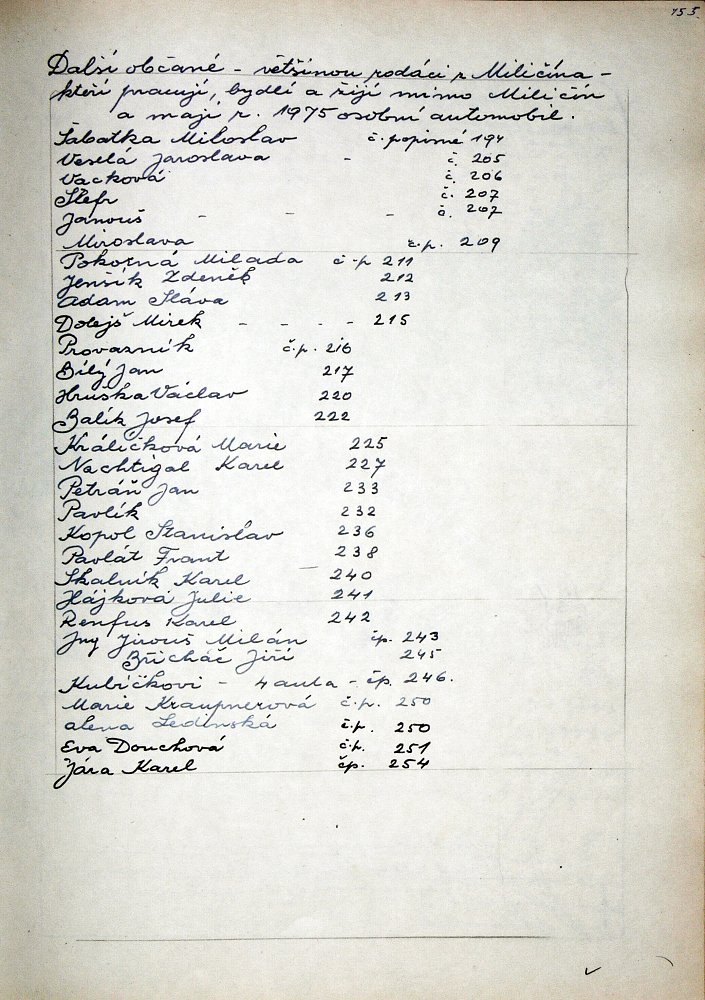 155.
Další občané - většinou rodáci z Miličína -
kteří pracují, bydlí a žijí mimo Miličín
a mají r. 1975 osobní automobil.
Šabatka Miloslav č. popisné 194
Veselá Jaroslava - č. 205
Vacková č. 206
Štefr č. 207
Janouš - - - č. 207
Miroslava č.p. 209
Pokorná Milada č p 211
Jenšík Zdeněk 212
Adam Sláva 213
Dolejš Mirek - - - - 215
Provazník č.p. 216
Bílý Jan 217
Hruška Václav 220
Balík Josef 222
Králíčková Marie 225
Nachtigal Karel 227
Petráň Jan 233
Pavlík 232
Kopol Stanislav 236
Pavlát Frant 238
Skalník Karel 240
Hájková Julie 241
Renfus Karel 242
Ing Jirouš Milán čp. 243
Břicháč Jiří 245
Kubíčkovi - 4 auta - čp. 246.
Marie Kraupnerová č.p. 250
Alena Ledinská č.p. 250
Eva Douchová č.p. 251
Jára Karel čp. 254